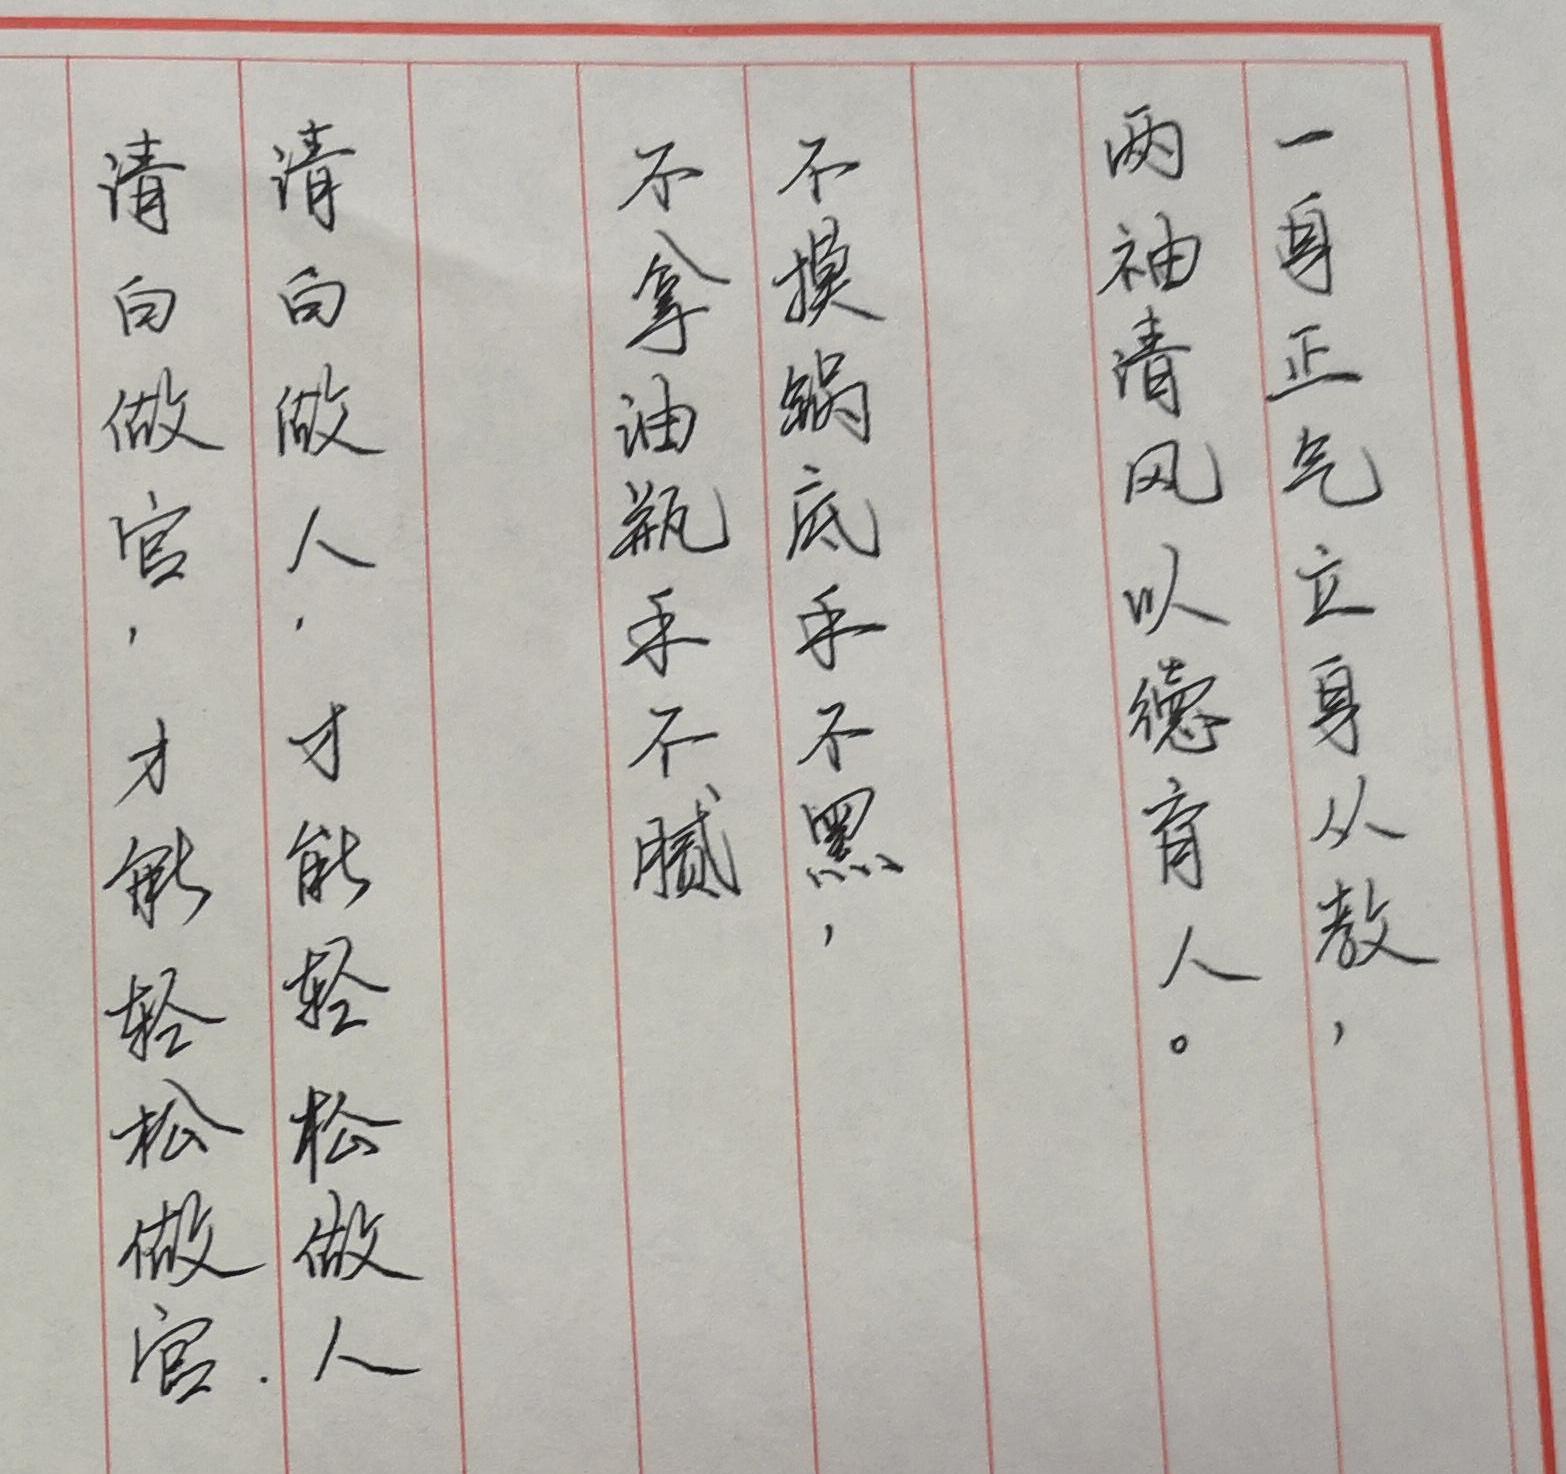 一身正气立身从教，
两袖清风以德育人。
不摸锅底手不黑，
不拿油瓶手不腻
清白做人，才能轻松做人
清白做官，才能轻松做官.